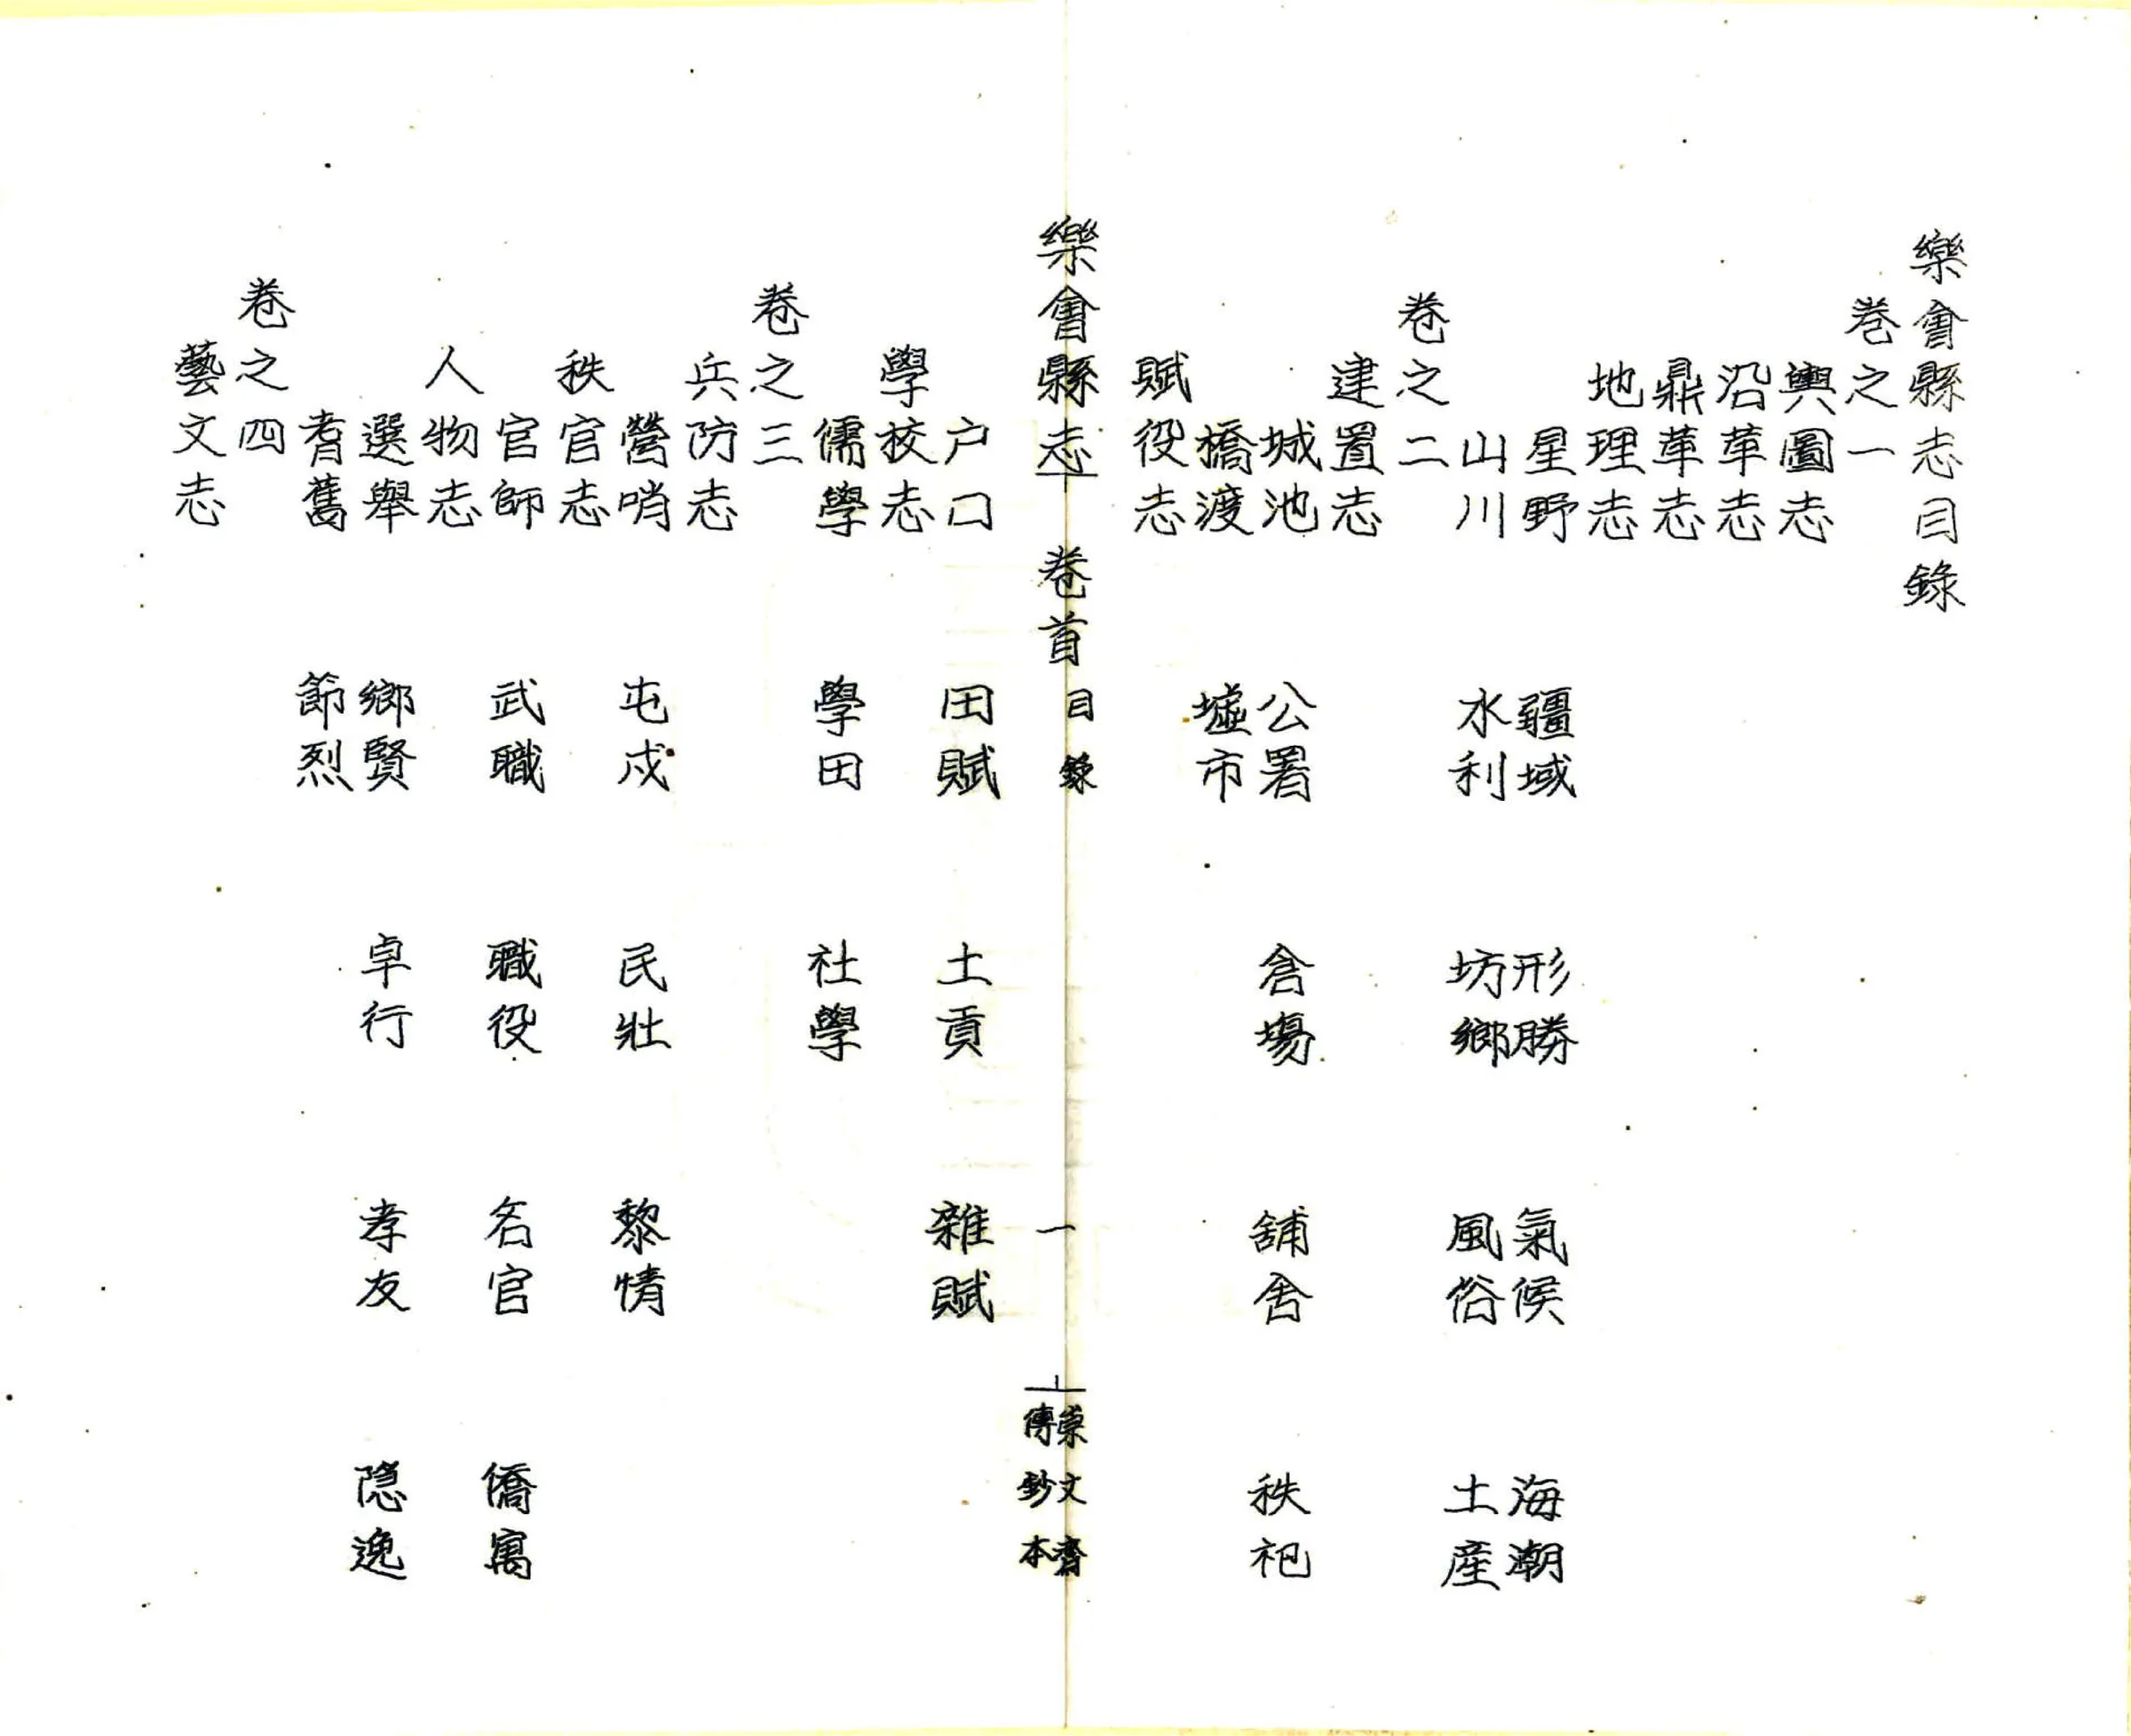 樂會縣志目錄
卷之一
輿圖志
沿革志
鼎革志
地理志
星野 疆域 形勝 氣候 海潮
山川 水利 坊鄉 風俗 土産
卷之二
建置志
城池 公署 倉場 舖舍 秩祀
橋渡 墟市
賦役志
樂會縣志 卷首 目錄 一 崇文齋傳鈔本
户口 田賦 土貢 雜賦
學校志
儒學 學田 社學
卷之三
兵防志
營哨 屯戍 民壯 黎情
秩官志
官師 武職 職役 名官 僑寓
人物志
選舉 鄉賢 卓行 孝友 隱逸
耆舊 節烈
卷之四
藝文志